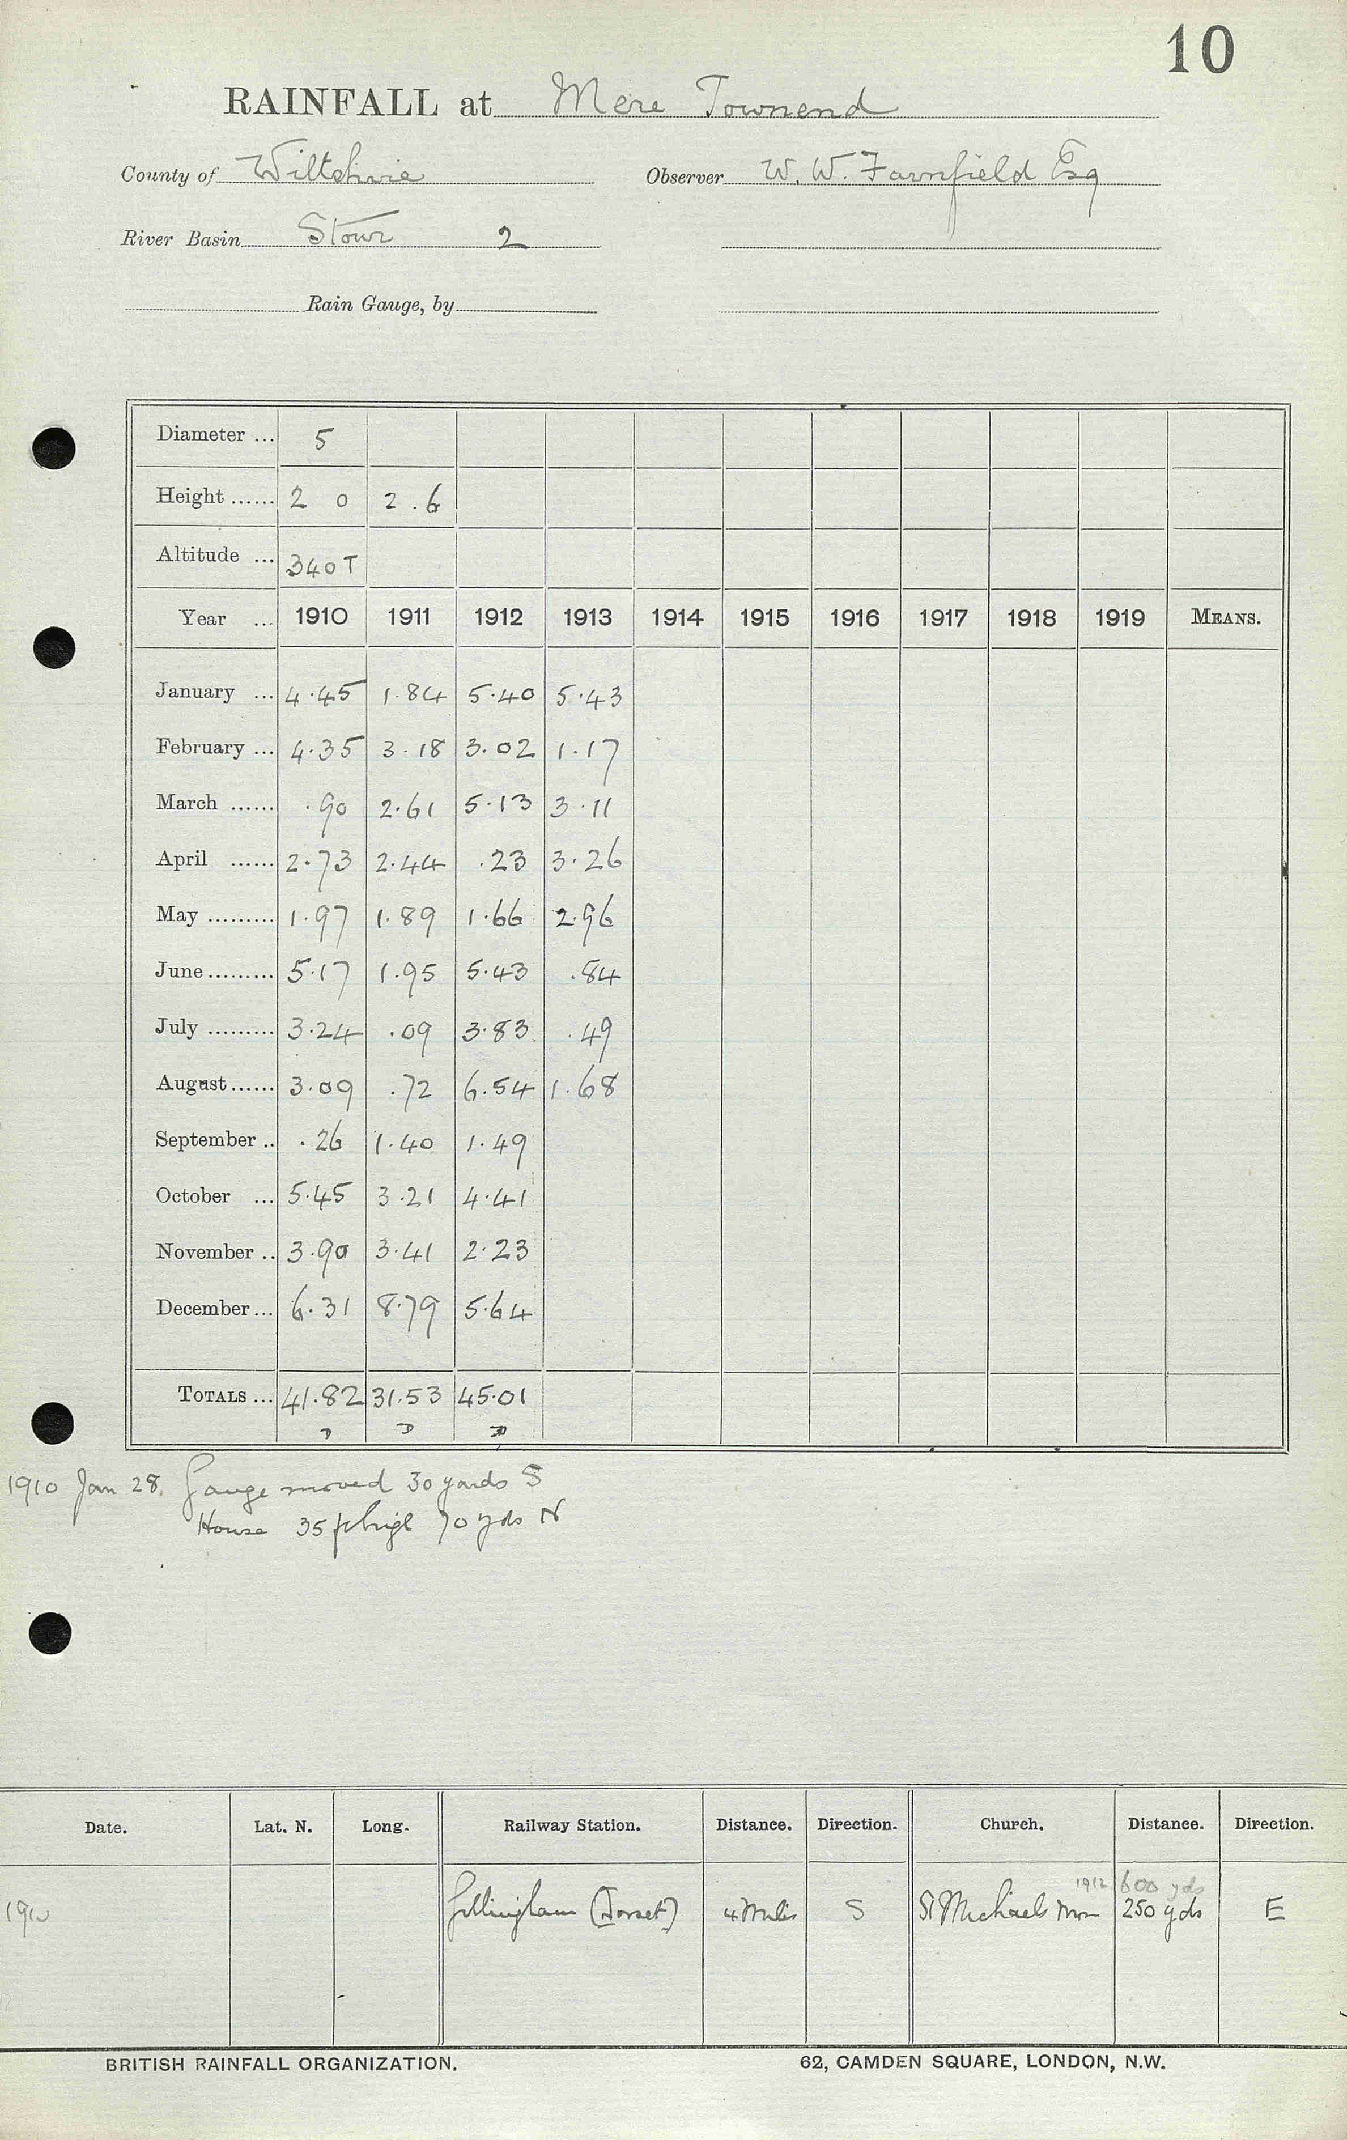 10
RAINFALL at Mere Townend
County of Wiltshire Observer W. W. Farnfield Esq
River Basin Stour 2
Rain Gauge, by
Diameter ... 5
Height ...... 2 0 2.6
Altitude ... 340 T
Year ... 1910 1911 1912 1913 1914 1915 1916 1917 1918 1919 MEANS.
January ... 4.45 1.84 5.40 5.43
February ... 4.35 3.18 3.02 1.17
March ...... .90 2.61 5.13 3.11
April ...... 2.73 2.44 .23 3.26
May ......... 1.97 1.89 1.66 2.96
June ......... 5.17 1.95 5.43 .84
July ......... 3.24 .09 3.83 .49
August ...... 3.09 .72 6.54 1.68
September .. .26 1.40 1.49
October ... 5.45 3.21 4.41
November .. 3.90 3.41 2.23
December ... 6.31 8.79 5.64
TOTALS ... 41.82 31.53 45.01
1910 Jan 28. Gauge moved 30 yards S
House 35 ft high 70 yds N
Date. Lat. N. Long. Railway Station. Distance. Direction. Church. Distance. Direction.
1912 600 yds
1910 Gillingham (Dorset) 4 Miles S St Michaels 250 yds E
BRITISH RAINFALL ORGANIZATION. 62, CAMDEN SQUARE, LONDON, N.W.